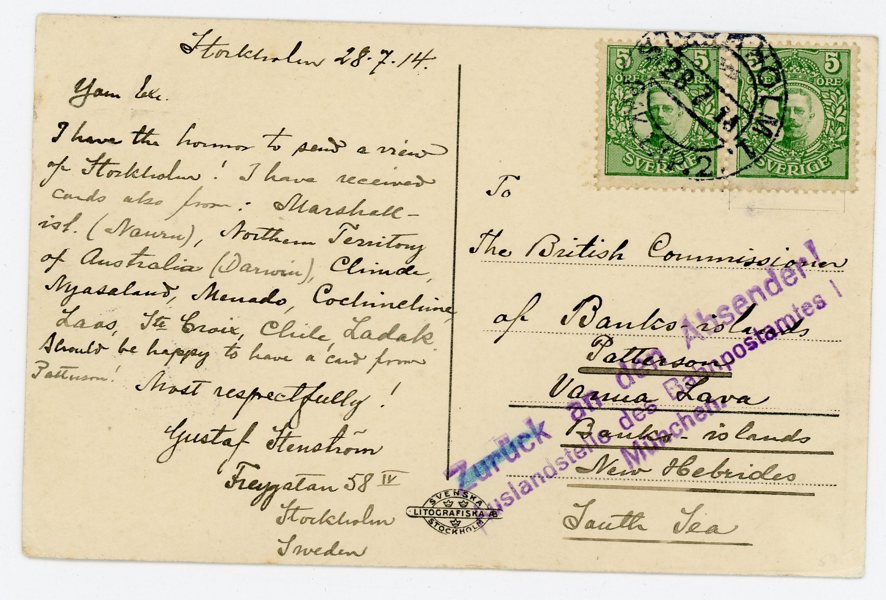 Stockholm 28.7.14.
Your Exc.
I have the honnor to send a view
of Stockholm! I have received
cards also from: Marshall-
isl. (Nauru), Northern Territory
of Australia (Darwin), Chimde,
Nyasaland, Menado, Cochinchine,
Laos, Ste Croix, Chile, Ladak.
Should be happy to have a card from
Patterson!
Most respectfully!
Gustaf Stenström
Freygatan 58 IV
Stockholm
Sweden
SVENSKA
LITOGRAFISKA AB
STOCKHOLM
5 5
ÖRE
SVERIGE
5 5
ÖRE
SVERIGE
STOCKHOLM 1
28 7 14
To
The British Commissioner
of Banks-islands
Patterson
Vanua Lava
Banks-islands
New Hebrides
South Sea
Zurück an den Absender!
Auslandstelle des Bahnpostamtes I
München.